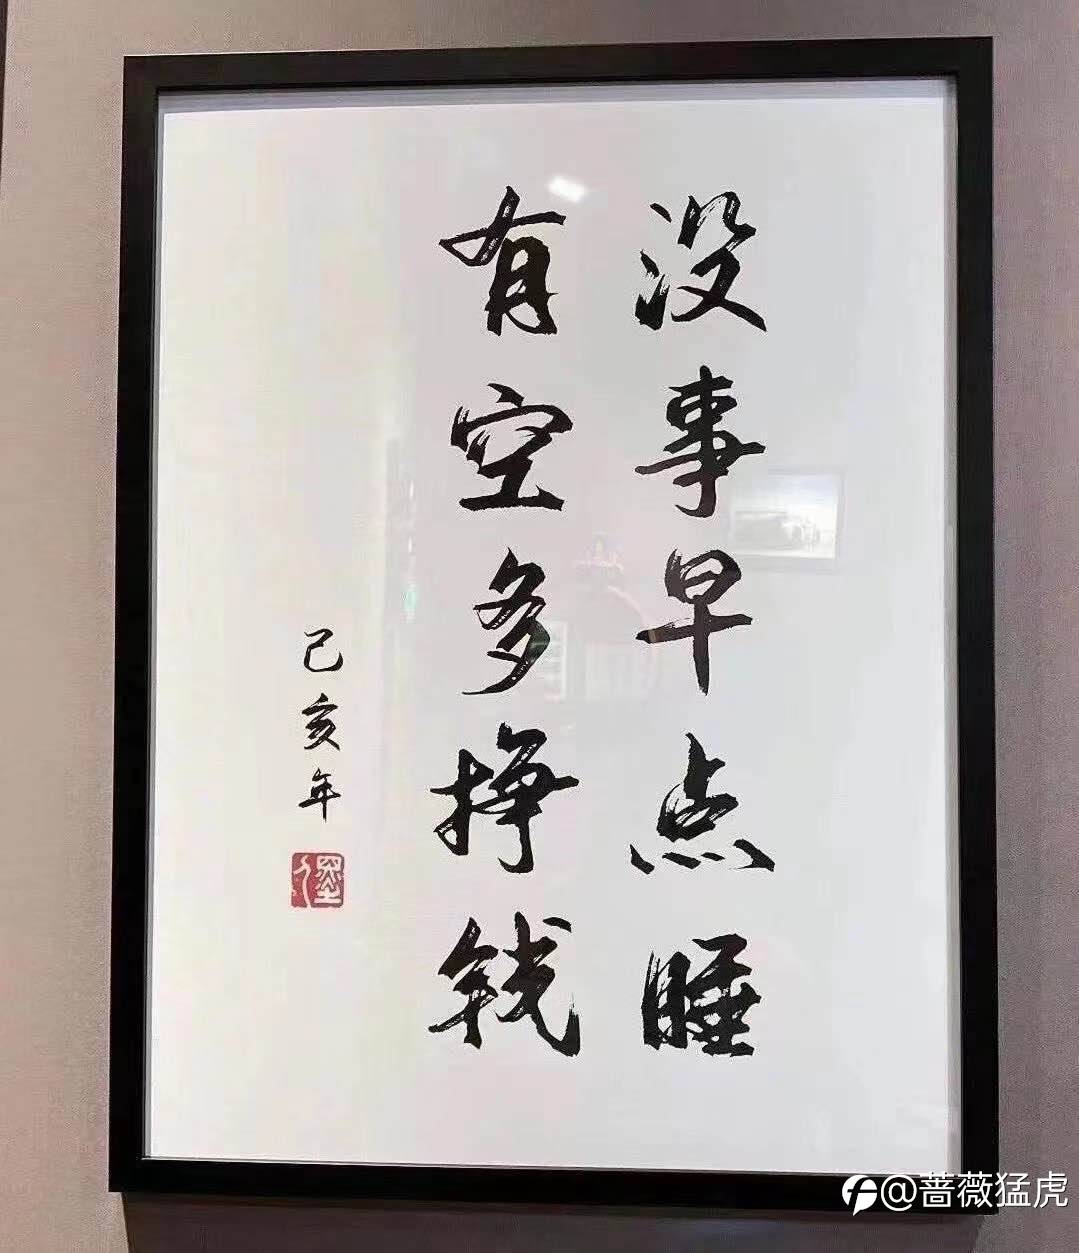 没事早点睡
有空多挣钱
己亥年
@蔷薇猛虎